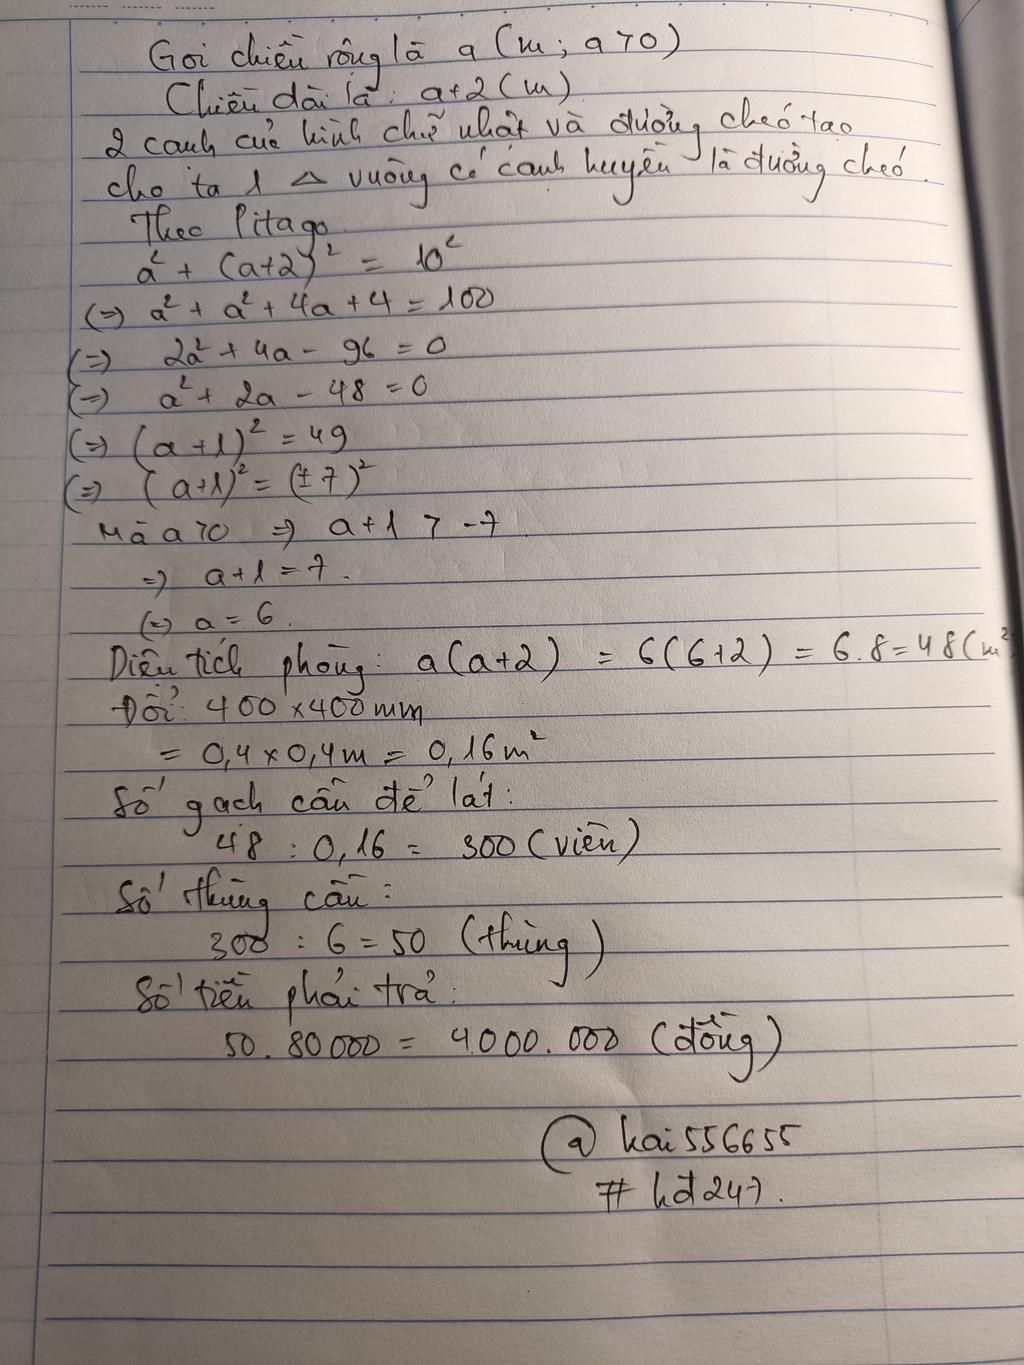 Gọi chiều rộng là a (m; a>0)
Chiều dài là: a+2 (m)
2 cạnh của hình chữ nhật và đường chéo tạo
cho ta 1 △ vuông có cạnh huyền là đường chéo.
Theo Pitago
a² + (a+2)² = 10²
(=) a² + a² + 4a + 4 = 100
(=) 2a² + 4a - 96 = 0
(=) a² + 2a - 48 = 0
(=) (a+1)² = 49
(=) (a+1)² = (±7)²
Mà a>0 => a+1 > -7
=> a+1 = 7.
(=) a = 6.
Diện tích phòng: a(a+2) = 6(6+2) = 6.8=48(m²
Đổi: 400×400mm
= 0,4×0,4m = 0,16m²
Số gạch cần để lát:
48 : 0,16 = 300 (viên)
Số thùng cần:
300 : 6 = 50 (thùng)
Số tiền phải trả:
50. 80000 = 4000.000 (đồng)
@ kai556655
# hđ247.